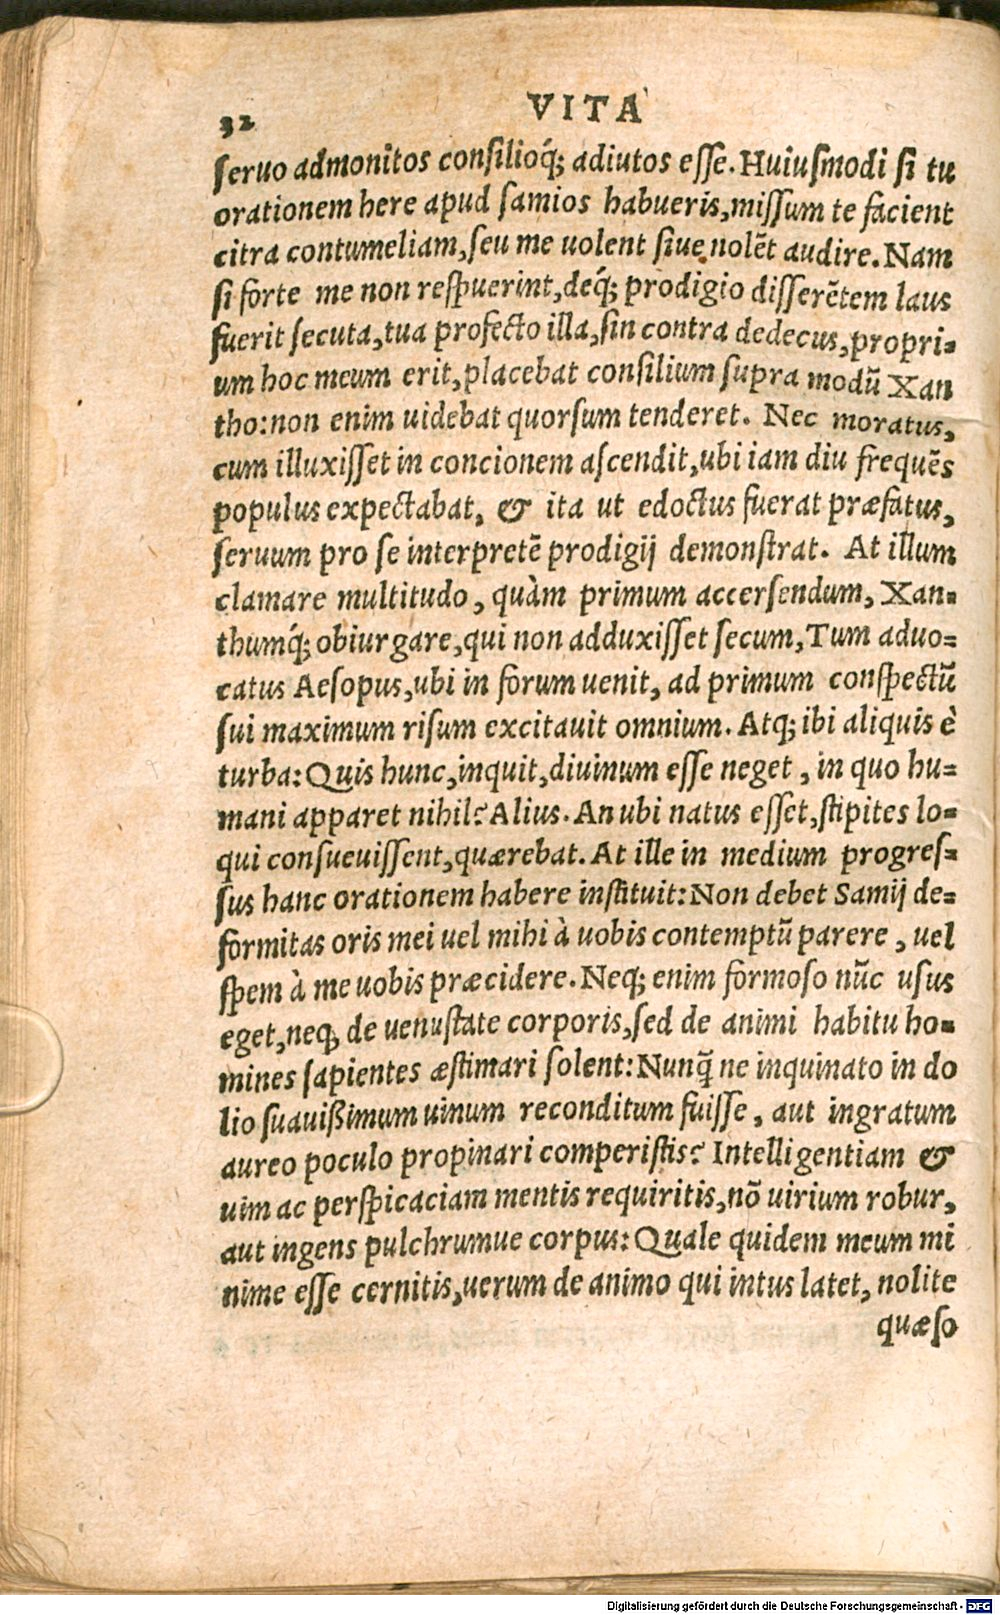 32
VITA
ſeruo admonitos conſilioq́; adiutos eſſe. Huiuſmodi ſi tu
orationem here apud ſamios habueris, miſſum te facient
citra contumeliam, ſeu me uolent ſiue nolẽt audire. Nam
ſi forte me non reſpuerint, deq́; prodigio diſſerẽtem laus
fuerit ſecuta, tua profecto illa, ſin contra dedecus, propri-
um hoc meum erit, placebat conſilium ſupra modũ Xan
tho: non enim uidebat quorſum tenderet. Nec moratus,
cum illuxiſſet in concionem aſcendit, ubi iam diu frequẽs
populus expectabat, & ita ut edoctus fuerat præfatus,
ſeruum pro ſe interpretẽ prodigij demonſtrat. At illum
clamare multitudo, quàm primum accerſendum, Xan-
thumq́; obiurgare, qui non adduxiſſet ſecum, Tum aduo-
catus Aeſopus, ubi in forum uenit, ad primum conſpectũ
ſui maximum riſum excitauit omnium. Atq; ibi aliquis è
turba: Quis hunc, inquit, diuinum eſſe neget, in quo hu-
mani apparet nihil? Alius. An ubi natus eſſet, ſtipites lo-
qui conſueuiſſent, quærebat. At ille in medium progreſ-
ſus hanc orationem habere inſtituit: Non debet Samij de-
formitas oris mei uel mihi à uobis contemptũ parere, uel
ſpem à me uobis præcidere. Neq; enim formoſo nũc uſus
eget, neq; de uenuſtate corporis, ſed de animi habitu ho-
mines ſapientes æſtimari ſolent: Nunq̃ ne inquinato in do
lio ſuauißimum uinum reconditum fuiſſe, aut ingratum
aureo poculo propinari comperiſtis? Intelligentiam &
uim ac perſpicaciam mentis requiritis, nõ uirium robur,
aut ingens pulchrumue corpus: Quale quidem meum mi
nime eſſe cernitis, uerum de animo qui intus latet, nolite
quæſo
Digitalisierung gefördert durch die Deutsche Forschungsgemeinschaft - DFG